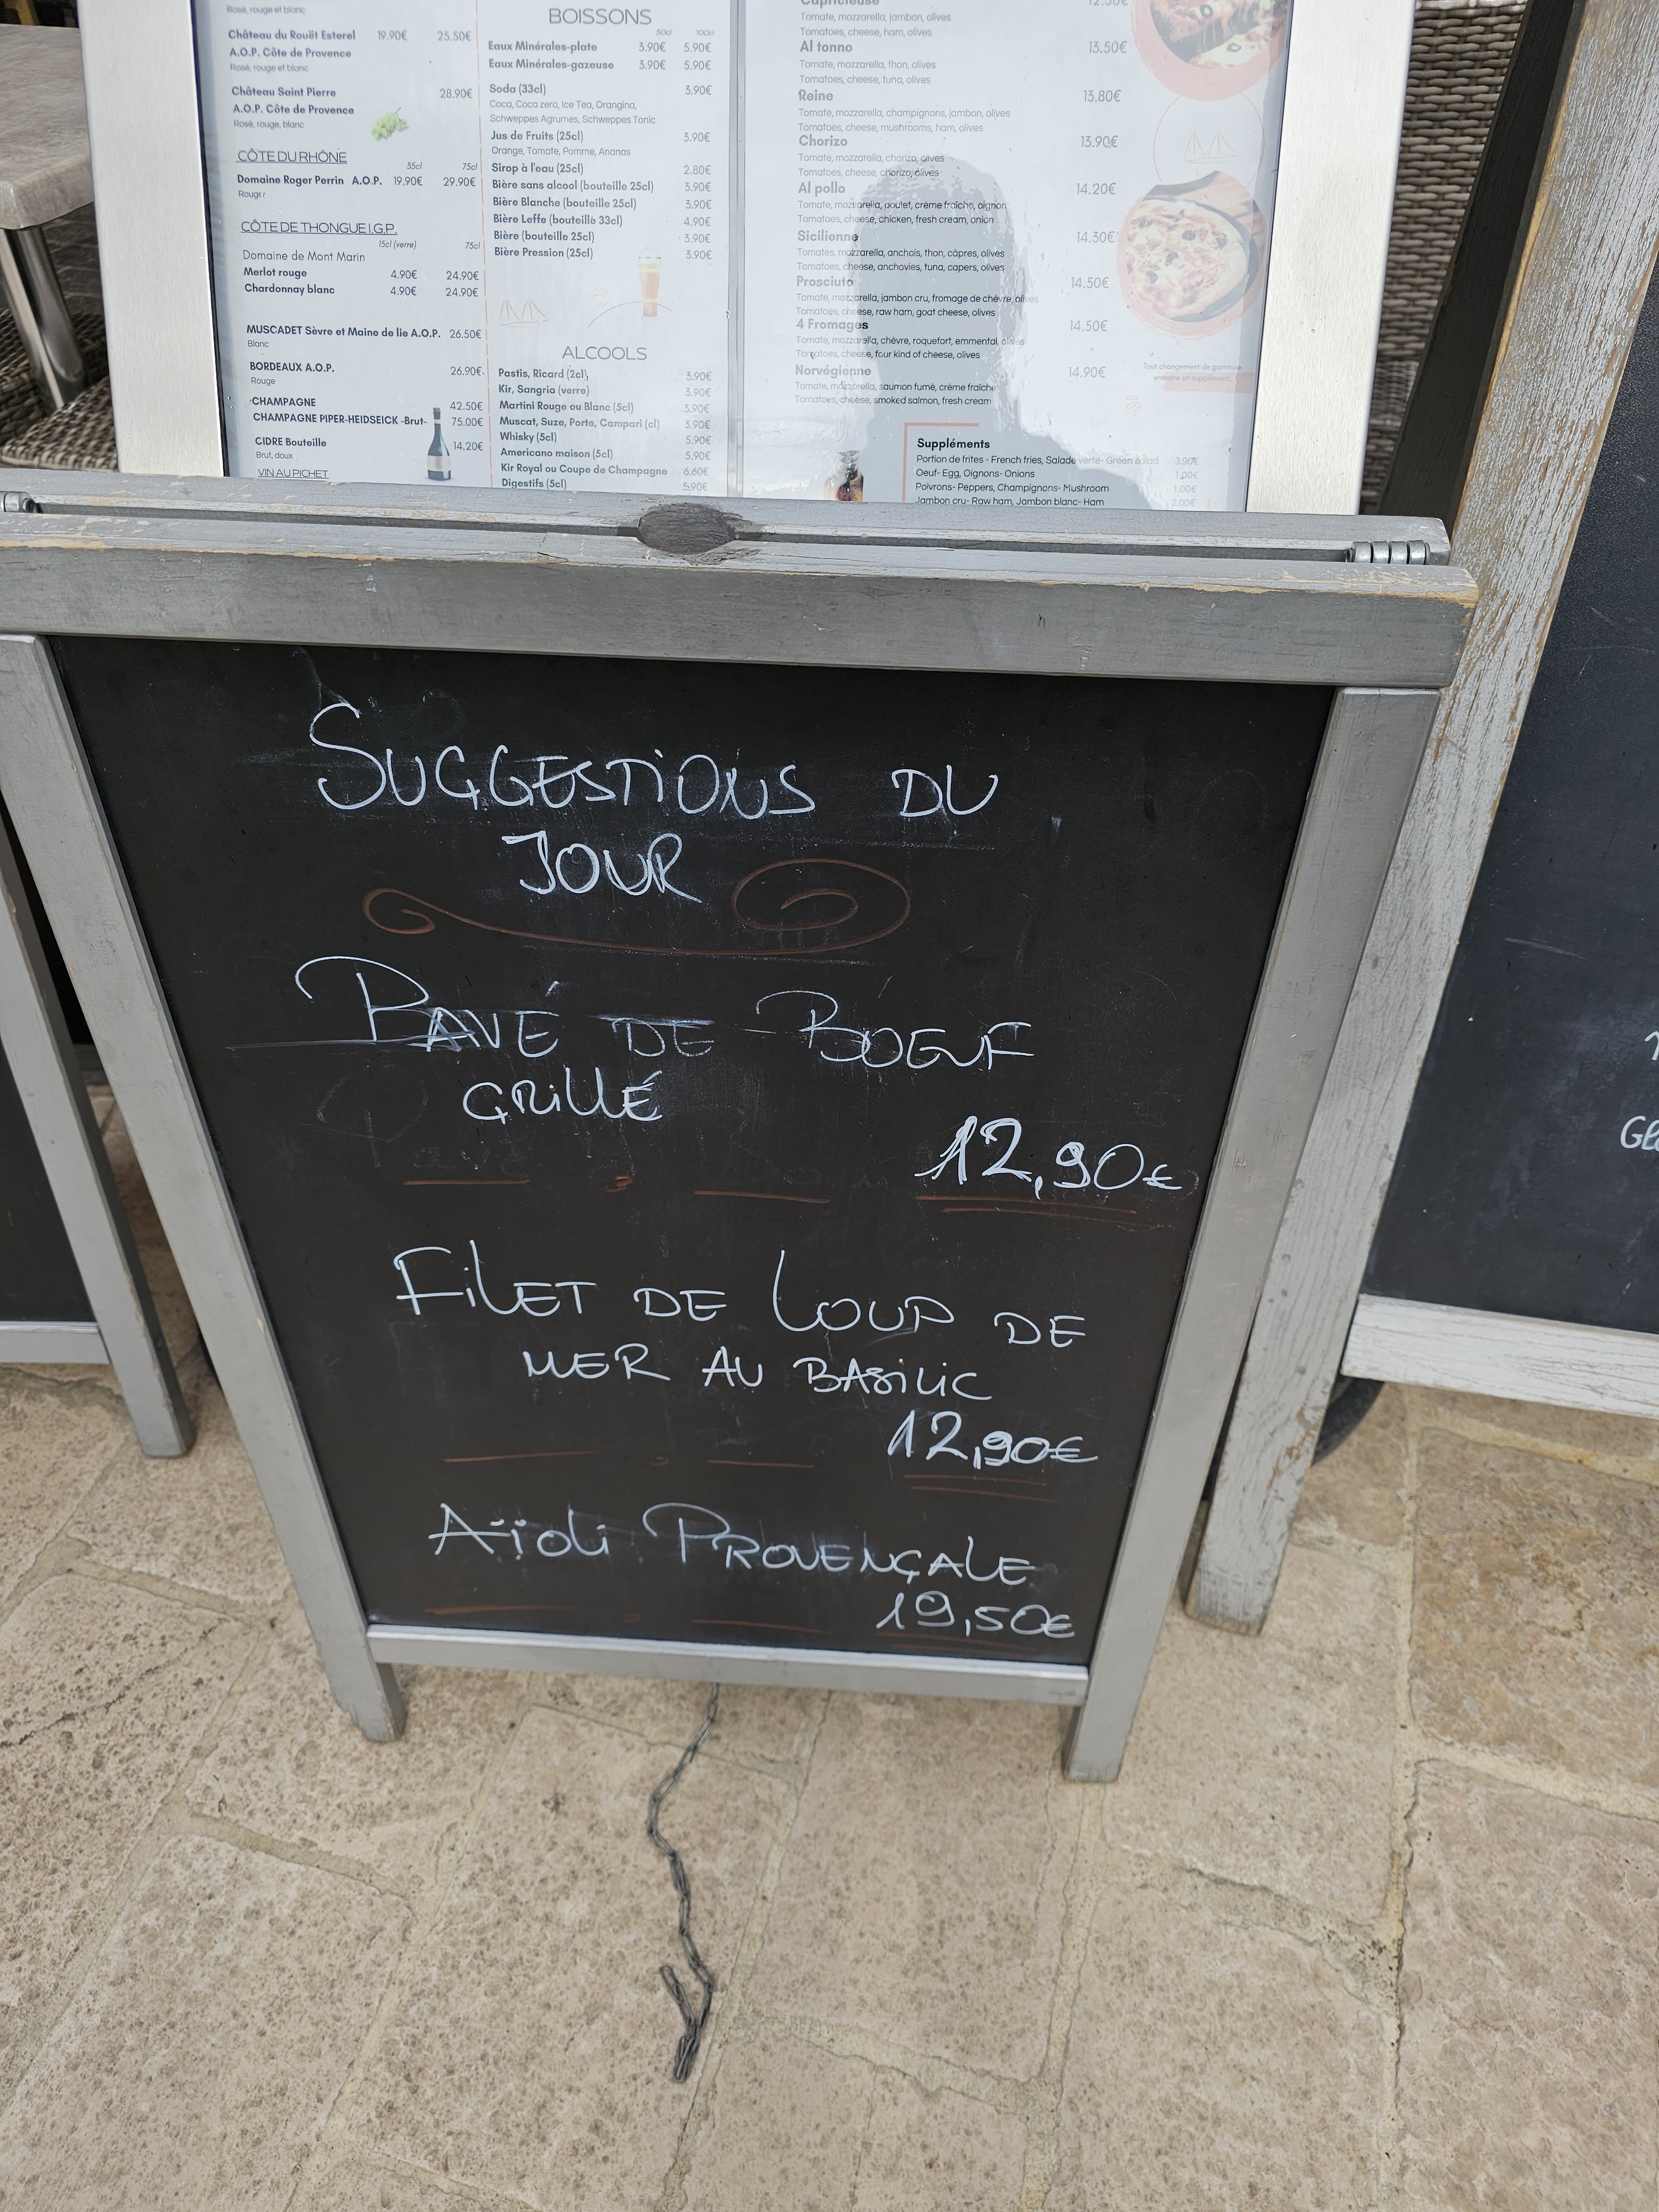 Rosé, rouge et blanc
Château du Rouët Esterel 19.90€ 25.50€
A.O.P. Côte de Provence
Rosé, rouge et blanc
Château Saint Pierre 28.90€
A.O.P. Côte de Provence
Rosé, rouge, blanc
CÔTE DU RHÔNE
35cl 75cl
Domaine Roger Perrin A.O.P. 19.90€ 29.90€
Rouge
CÔTE DE THONGUE I.G.P.
15cl (verre) 75cl
Domaine de Mont Marin
Merlot rouge 4.90€ 24.90€
Chardonnay blanc 4.90€ 24.90€
MUSCADET Sèvre et Maine de lie A.O.P. 26.50€
Blanc
BORDEAUX A.O.P. 26.90€
Rouge
CHAMPAGNE 42.50€
CHAMPAGNE PIPER-HEIDSEICK -Brut- 75.00€
CIDRE Bouteille 14.20€
Brut, doux
VIN AU PICHET
BOISSONS
50cl 100cl
Eaux Minérales-plate 3.90€ 5.90€
Eaux Minérales-gazeuse 3.90€ 5.90€
Soda (33cl) 3.90€
Coca, Coca zero, Ice Tea, Orangina,
Schweppes Agrumes, Schweppes Tonic
Jus de Fruits (25cl) 3.90€
Orange, Tomate, Pomme, Ananas
Sirop à l'eau (25cl) 2.80€
Bière sans alcool (bouteille 25cl) 3.90€
Bière Blanche (bouteille 25cl) 3.90€
Bière Leffe (bouteille 33cl) 4.90€
Bière (bouteille 25cl) 3.90€
Bière Pression (25cl) 3.90€
ALCOOLS
Pastis, Ricard (2cl) 3.90€
Kir, Sangria (verre) 3.90€
Martini Rouge ou Blanc (5cl) 3.90€
Muscat, Suze, Porto, Campari (cl) 3.90€
Whisky (5cl) 5.90€
Americano maison (5cl) 5.90€
Kir Royal ou Coupe de Champagne 6.60€
Digestifs (5cl) 5.90€
Capricieuse 12.50€
Tomate, mozzarella, jambon, olives
Tomatoes, cheese, ham, olives
Al tonno 13.50€
Tomate, mozzarella, thon, olives
Tomatoes, cheese, tuna, olives
Reine 13.80€
Tomate, mozzarella, champignons, jambon, olives
Tomatoes, cheese, mushrooms, ham, olives
Chorizo 13.90€
Tomate, mozzarella, chorizo, olives
Tomatoes, cheese, chorizo, olives
Al pollo 14.20€
Tomate, mozzarella, poulet, crème fraîche, oignon
Tomatoes, cheese, chicken, fresh cream, onion
Sicilienne 14.30€
Tomates, mozzarella, anchois, thon, câpres, olives
Tomatoes, cheese, anchovies, tuna, capers, olives
Prosciuto 14.50€
Tomate, mozzarella, jambon cru, fromage de chèvre, olives
Tomatoes, cheese, raw ham, goat cheese, olives
4 Fromages 14.50€
Tomate, mozzarella, chèvre, roquefort, emmental, olives
Tomatoes, cheese, four kind of cheese, olives
Norvégienne 14.90€
Tomate, mozzarella, saumon fumé, crème fraîche
Tomatoes, cheese, smoked salmon, fresh cream
Tout changement de garniture
entraîne un supplément.
Suppléments
Portion de frites - French fries, Salade verte- Green salad 3.90€
Oeuf- Egg, Oignons- Onions 1.00€
Poivrons- Peppers, Champignons- Mushroom 1.00€
Jambon cru- Raw ham, Jambon blanc- Ham 2.00€
SUGGESTIONS DU
JOUR
PAVÉ DE BOEUF
GRILLÉ
12,90€
FILET DE LOUP DE
MER AU BASILIC
12,90€
AÏOLI PROVENÇALE
19,50€